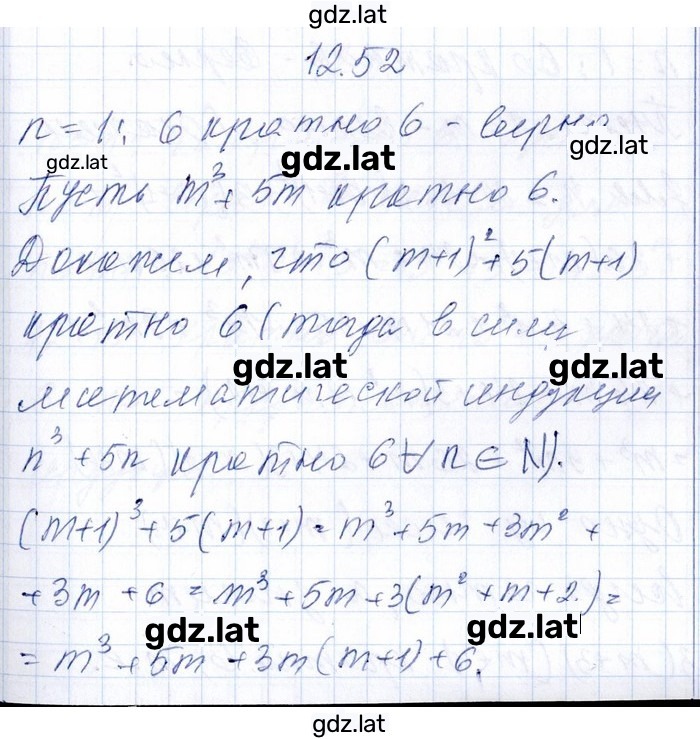 gdz.lat
12.52
n = 1: 6 кратно 6 - верно
gdz.lat gdz.lat gdz.lat
Пусть m³ + 5m кратно 6.
Докажем, что (m+1)² + 5(m+1)
кратно 6 (тогда в силу
gdz.lat gdz.lat
математической индукции
n³ + 5n кратно 6 ∀ n ∈ N).
(m+1)³ + 5(m+1) = m³ + 5m + 3m² +
+ 3m + 6 = m³ + 5m + 3(m² + m + 2) =
gdz.lat gdz.lat
= m³ + 5m + 3m(m+1) + 6.
gdz.lat